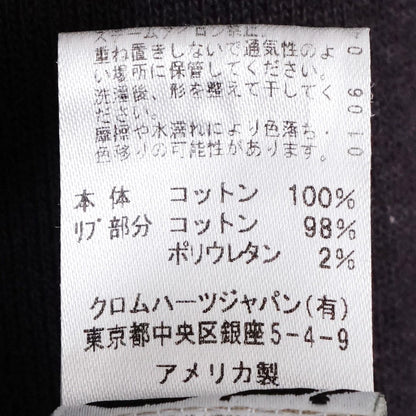 スチームアイロン禁止。
重ね置きしないで通気性のよ
い場所に保管してください。
洗濯後、形を整えて干してく
ださい。
摩擦や水濡れにより色落ち・
色移りの可能性があります。
0106 04
本体 コットン 100%
ﾘﾌﾞ部分 コットン 98%
ポリウレタン 2%
クロムハーツジャパン(有)
東京都中央区銀座5-4-9
アメリカ製